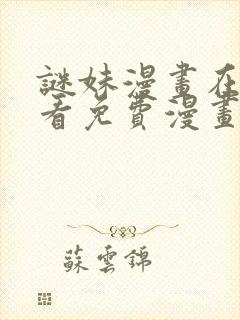 謎妹漫畫在
看免費漫畫
蘇雲錦